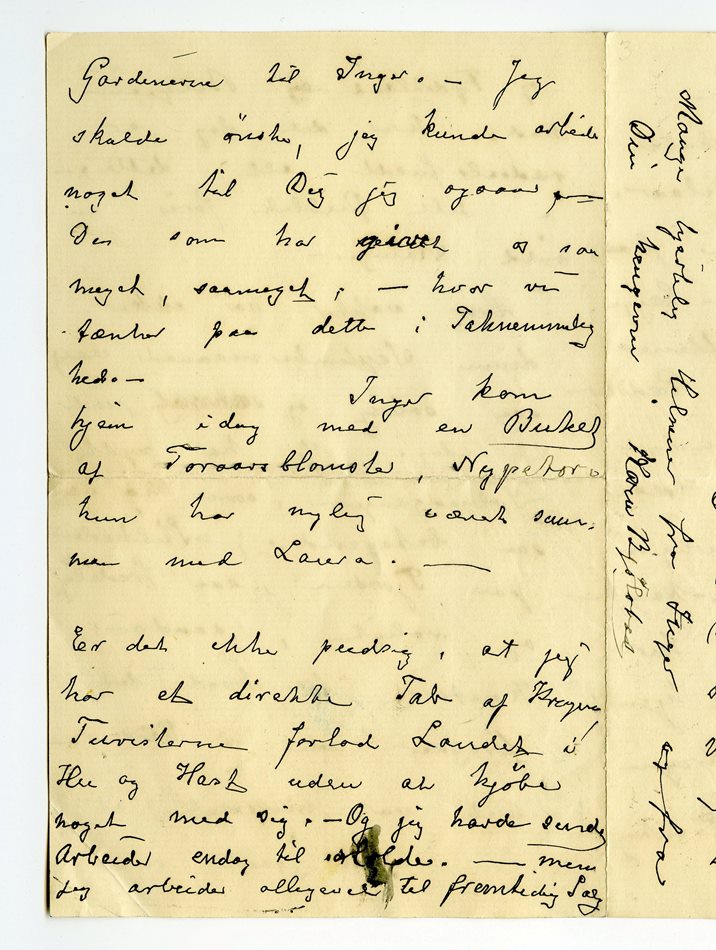 Gardinerne til Inger. – Jeg
skulde ønske, jeg kunde arbeide
noget til Dig jeg ogsaa, –
Du som har givet os saa
meget, saameget; – hvor vi
tænker paa dette i Taknemmelig
hed. –
Inger kom
hjem idag med en Buket
af Foraarsblomster, Nypetorn
hun har nylig været sam-
men med Laura. —
Er det ikke pudsig, at jeg
har et direkte Tab af Krigen,
Turisterne forlod Landet i
Hu og Hast uden at kjøbe
noget med sig. – Og jeg havde sendt
Arbeider endog til Molde. — men
jeg arbeider alligevel til fremtidig Salg
Mange hjertelig Hilsener fra Inger og fra
Din hengivne Karen Bjølstad